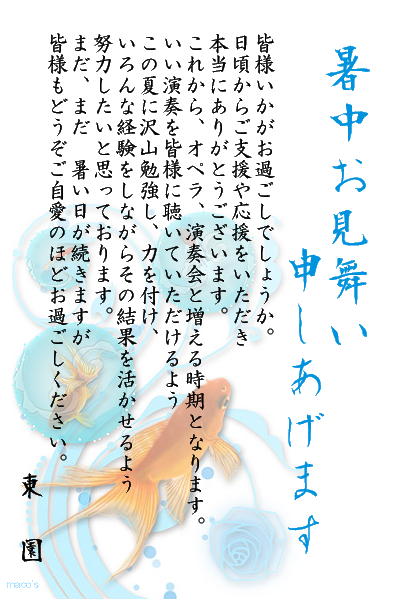 暑中お見舞い
申しあげます
皆様いかがお過ごしでしょうか。
日頃からご支援や応援をいただき
本当にありがとうございます。
これから、オペラ、演奏会と増える時期となります。
いい演奏を皆様に聴いていただけるよう
この夏に沢山勉強し、力を付け、
いろんな経験をしながらその結果を活かせるよう
努力したいと思っております。
まだ、まだ　暑い日が続きますが
皆様もどうぞご自愛のほどお過ごしください。
東　園